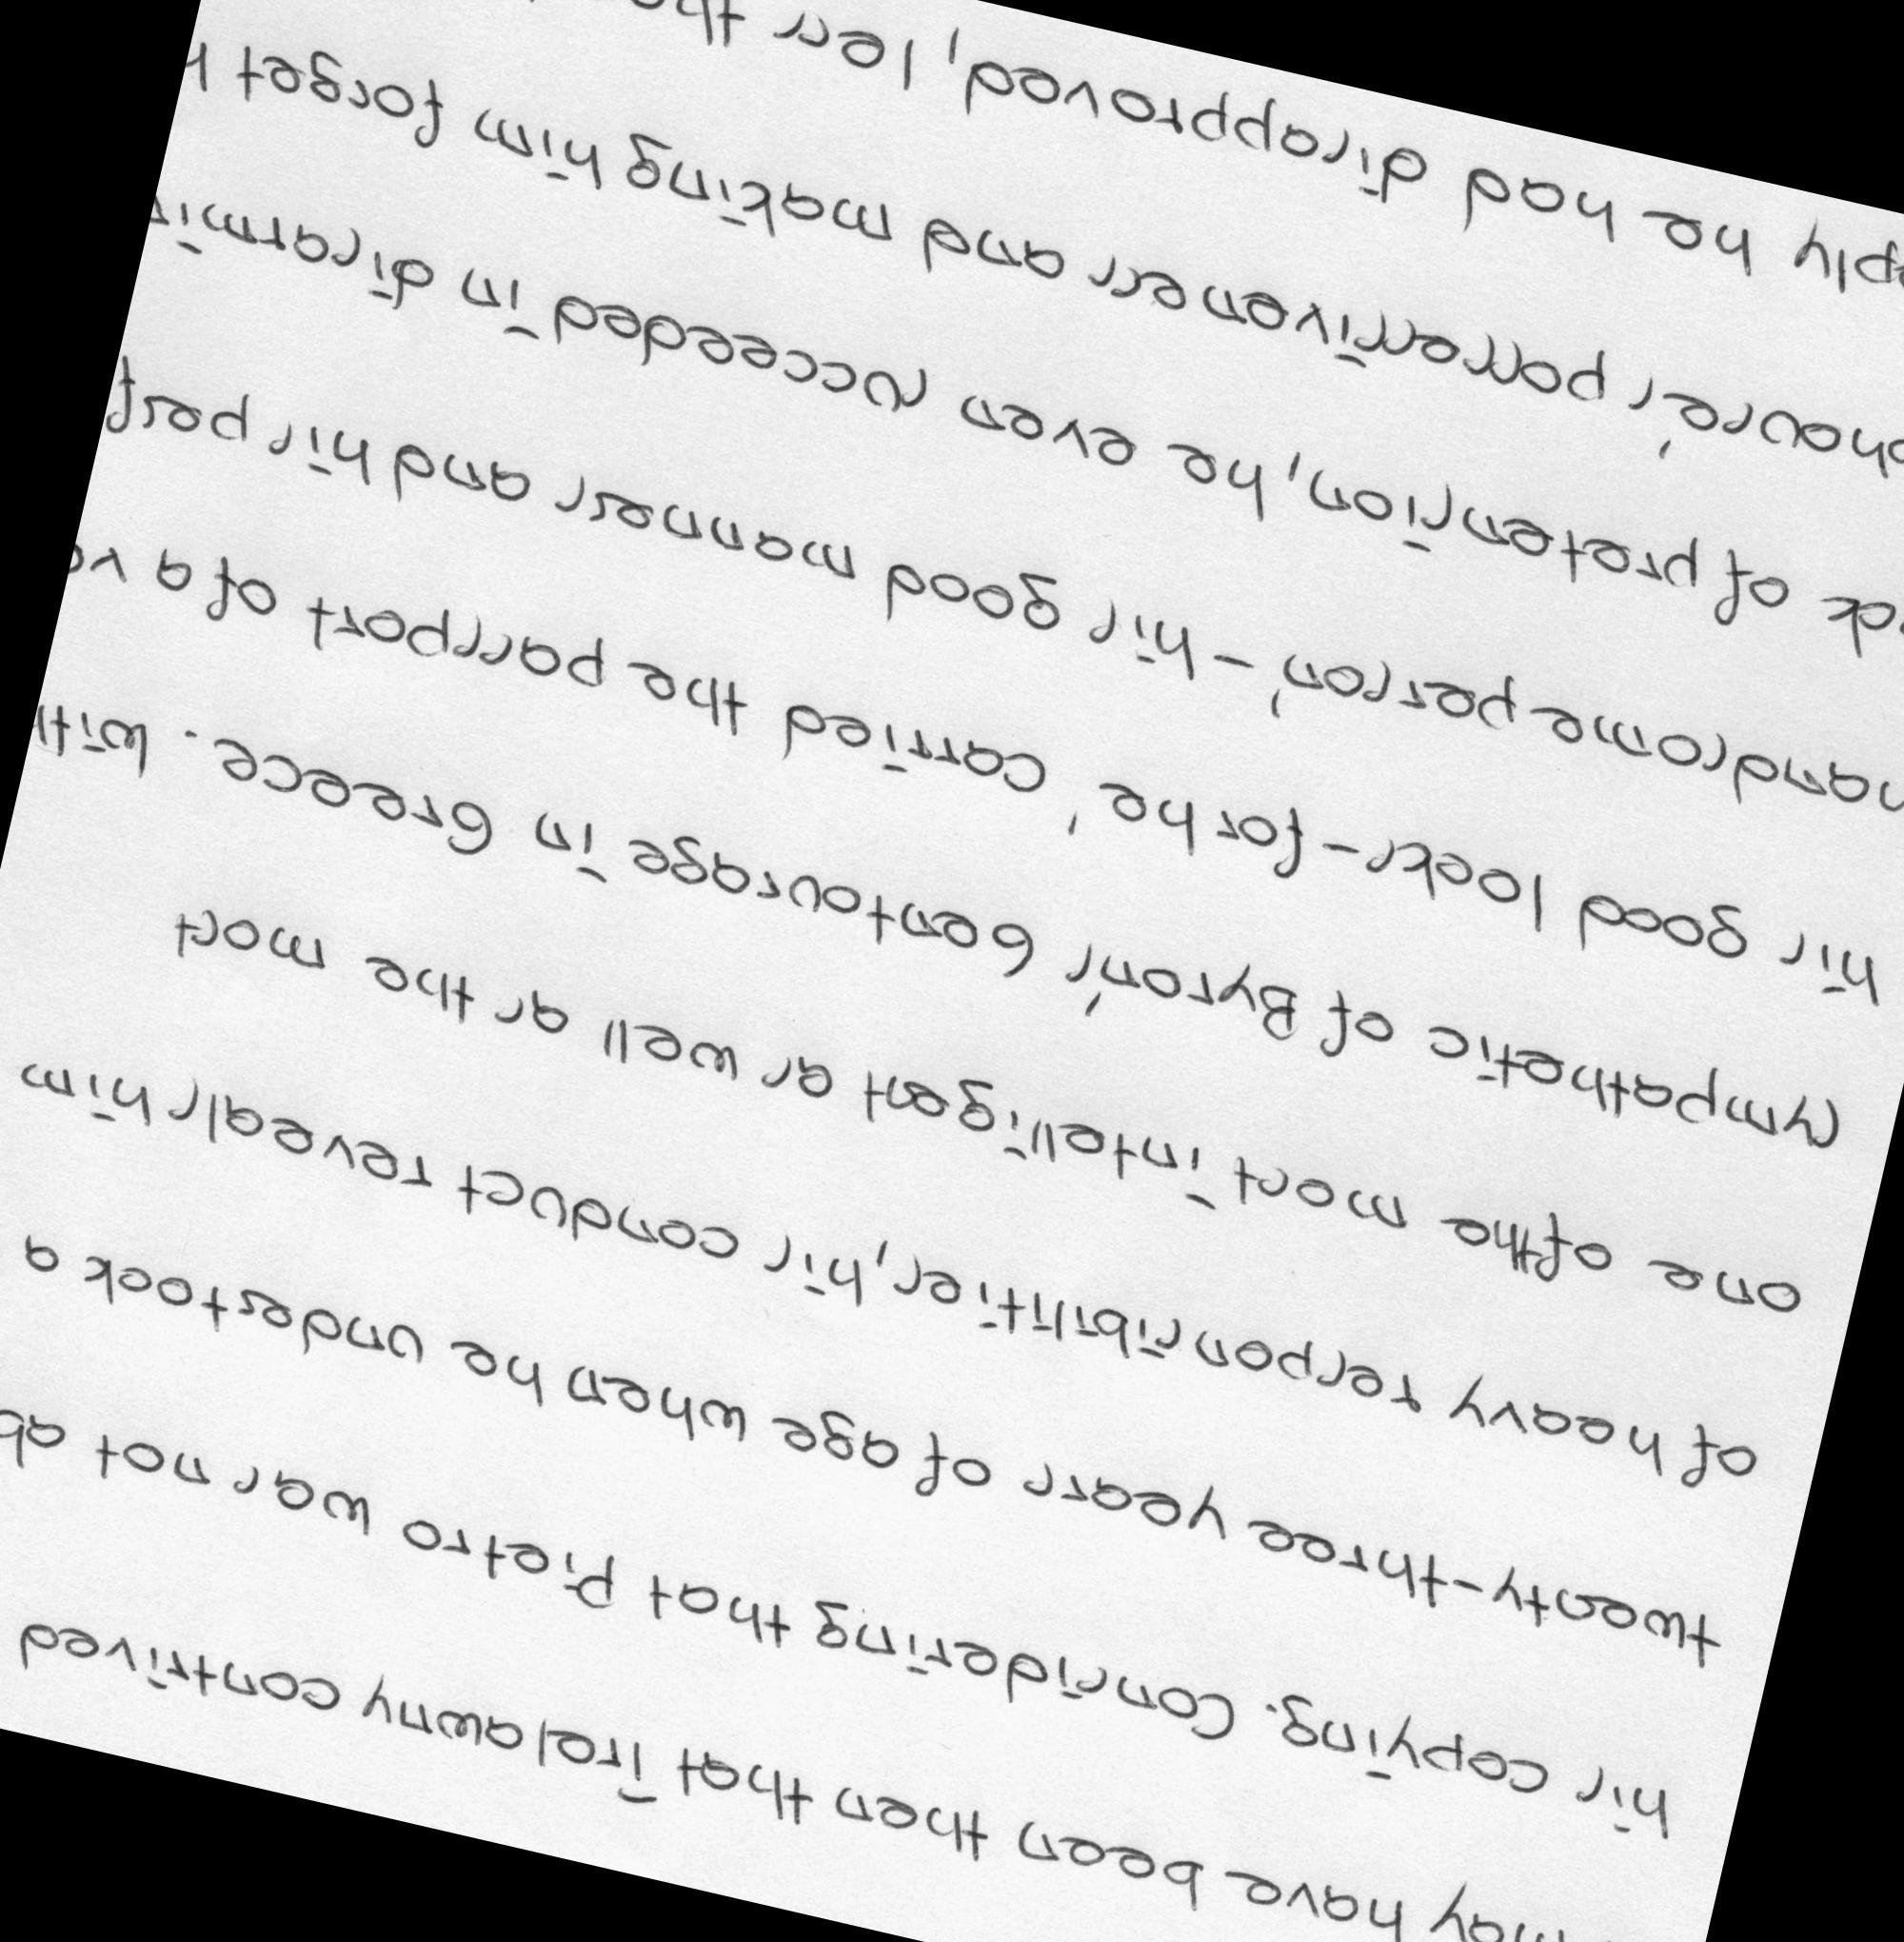 may have been then that Trelawny contrived
his copying. Considering that Pietro was not ab
twenty-three years of age when he undertook a
of heavy responsibilities, his conduct reveals him
one of the most intelligent as well as the most
sympathetic of Byron's Gentourage in Greece. With
his good looks - for he 'carried the passport of a ve
handsome person', - his good manners and his perf
ck of pretension, he even succeeded in disarmin
house's possessiveness and making him forget h
ply he had disapproved, less tho